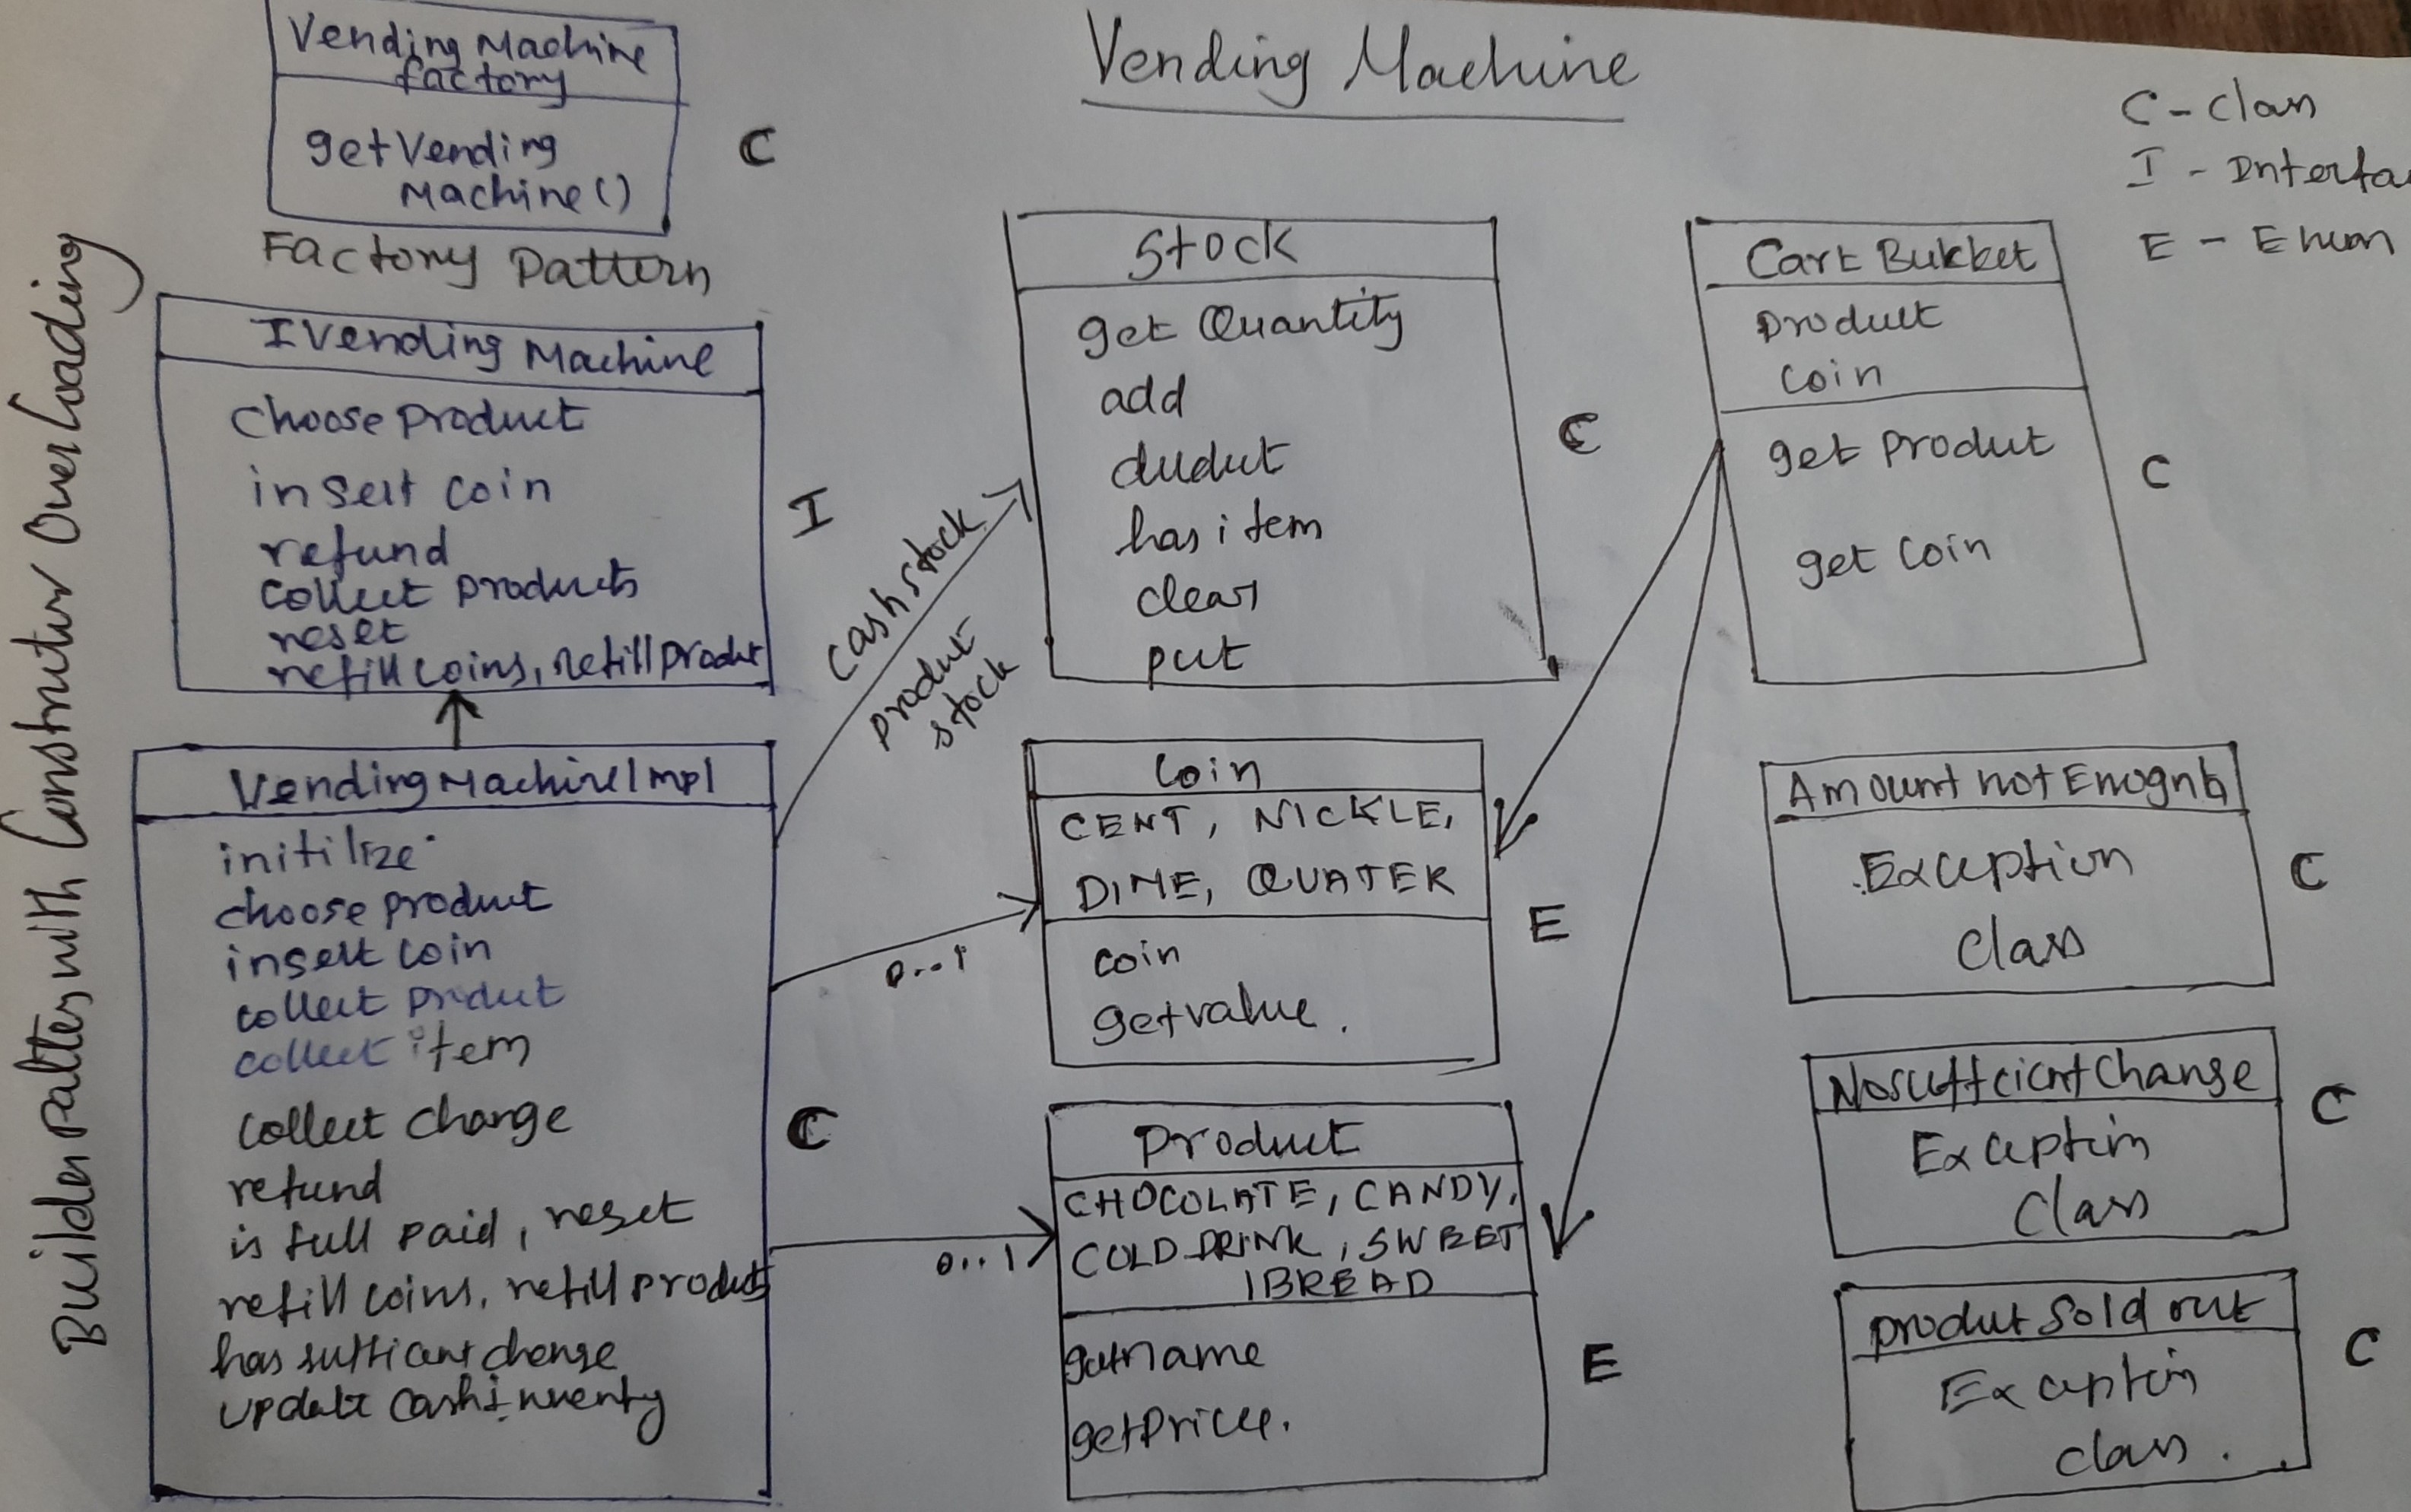 Vending Machine
C - Class
I - Interfa
E - Enum
Builder Pattern with Constructor OverLoading
Vending Machine
factory
getVending
Machine()
C
Factory Pattern
IVending Machine
Choose product
insert coin
refund
Collect products
reset
refill coins, refill product
I
VendingMachineImpl
initilize
choose product
insert coin
collect product
collect item
collect change
refund
is full paid, reset
refill coins, refill products
has sufficant change
update cashinventy
C
Cash stock
product
stock
0...1
0..1
Stock
get Quantity
add
duduct
has item
clear
put
C
Coin
CENT, NICKLE,
DIME, QUATER
coin
getvalue.
E
Product
CHOCOLATE, CANDY,
COLD DRINK, SWEET
, BREAD
getname
getprice.
E
Cart Bukket
product
coin
get product
get coin
C
Amount not Enough
Exception
Class
C
NosufficientChange
Exception
Class
C
product Sold out
Exception
class.
C